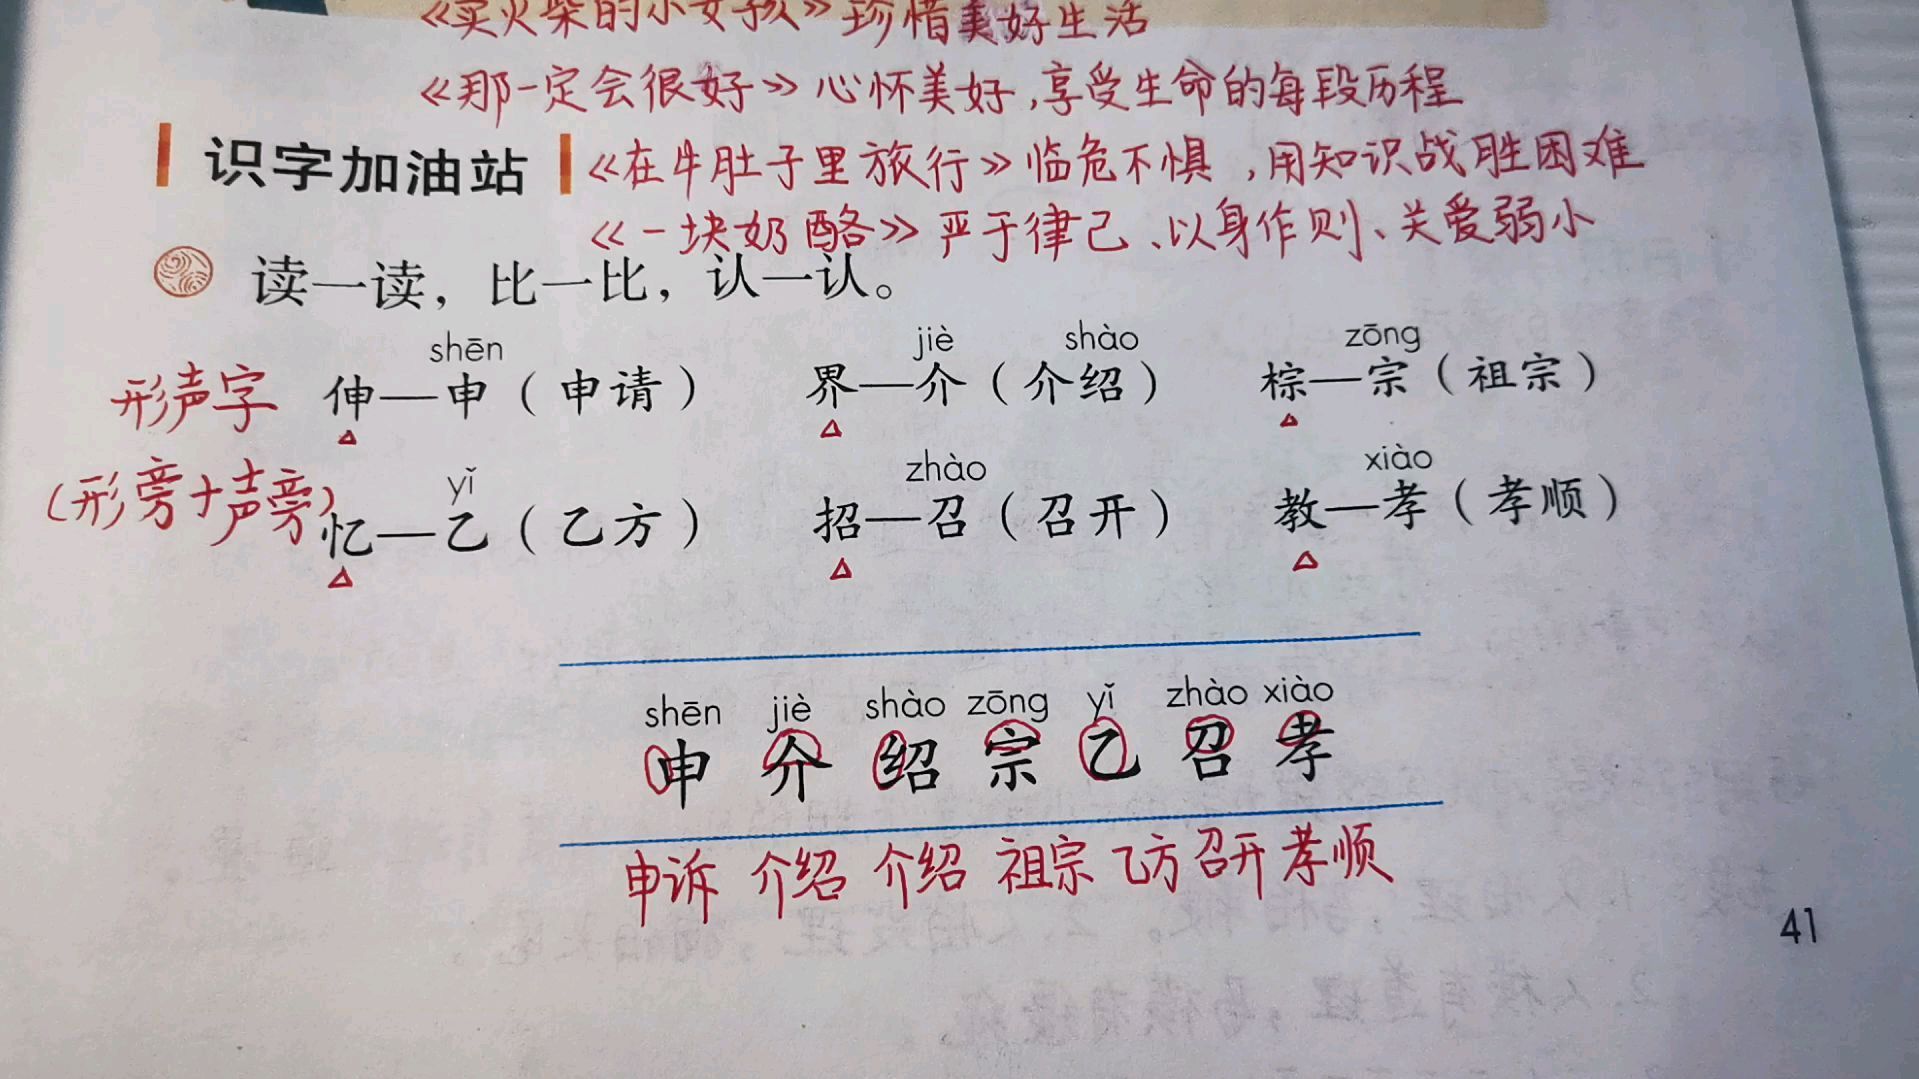 《卖火柴的小女孩》珍惜美好生活
《那一定会很好》心怀美好,享受生命的每段历程
识字加油站
《在牛肚子里旅行》临危不惧,用知识战胜困难
《一块奶酪》严于律己、以身作则、关爱弱小
读一读，比一比，认一认。
shēn jiè shào zōng
形声字 伸—申（申请） 界—介（介绍） 棕—宗（祖宗）
yǐ zhào xiào
(形旁+声旁) 忆—乙（乙方） 招—召（召开） 教—孝（孝顺）
shēn jiè shào zōng yǐ zhào xiào
申 介 绍 宗 乙 召 孝
申诉 介绍 介绍 祖宗 乙方 召开 孝顺
41